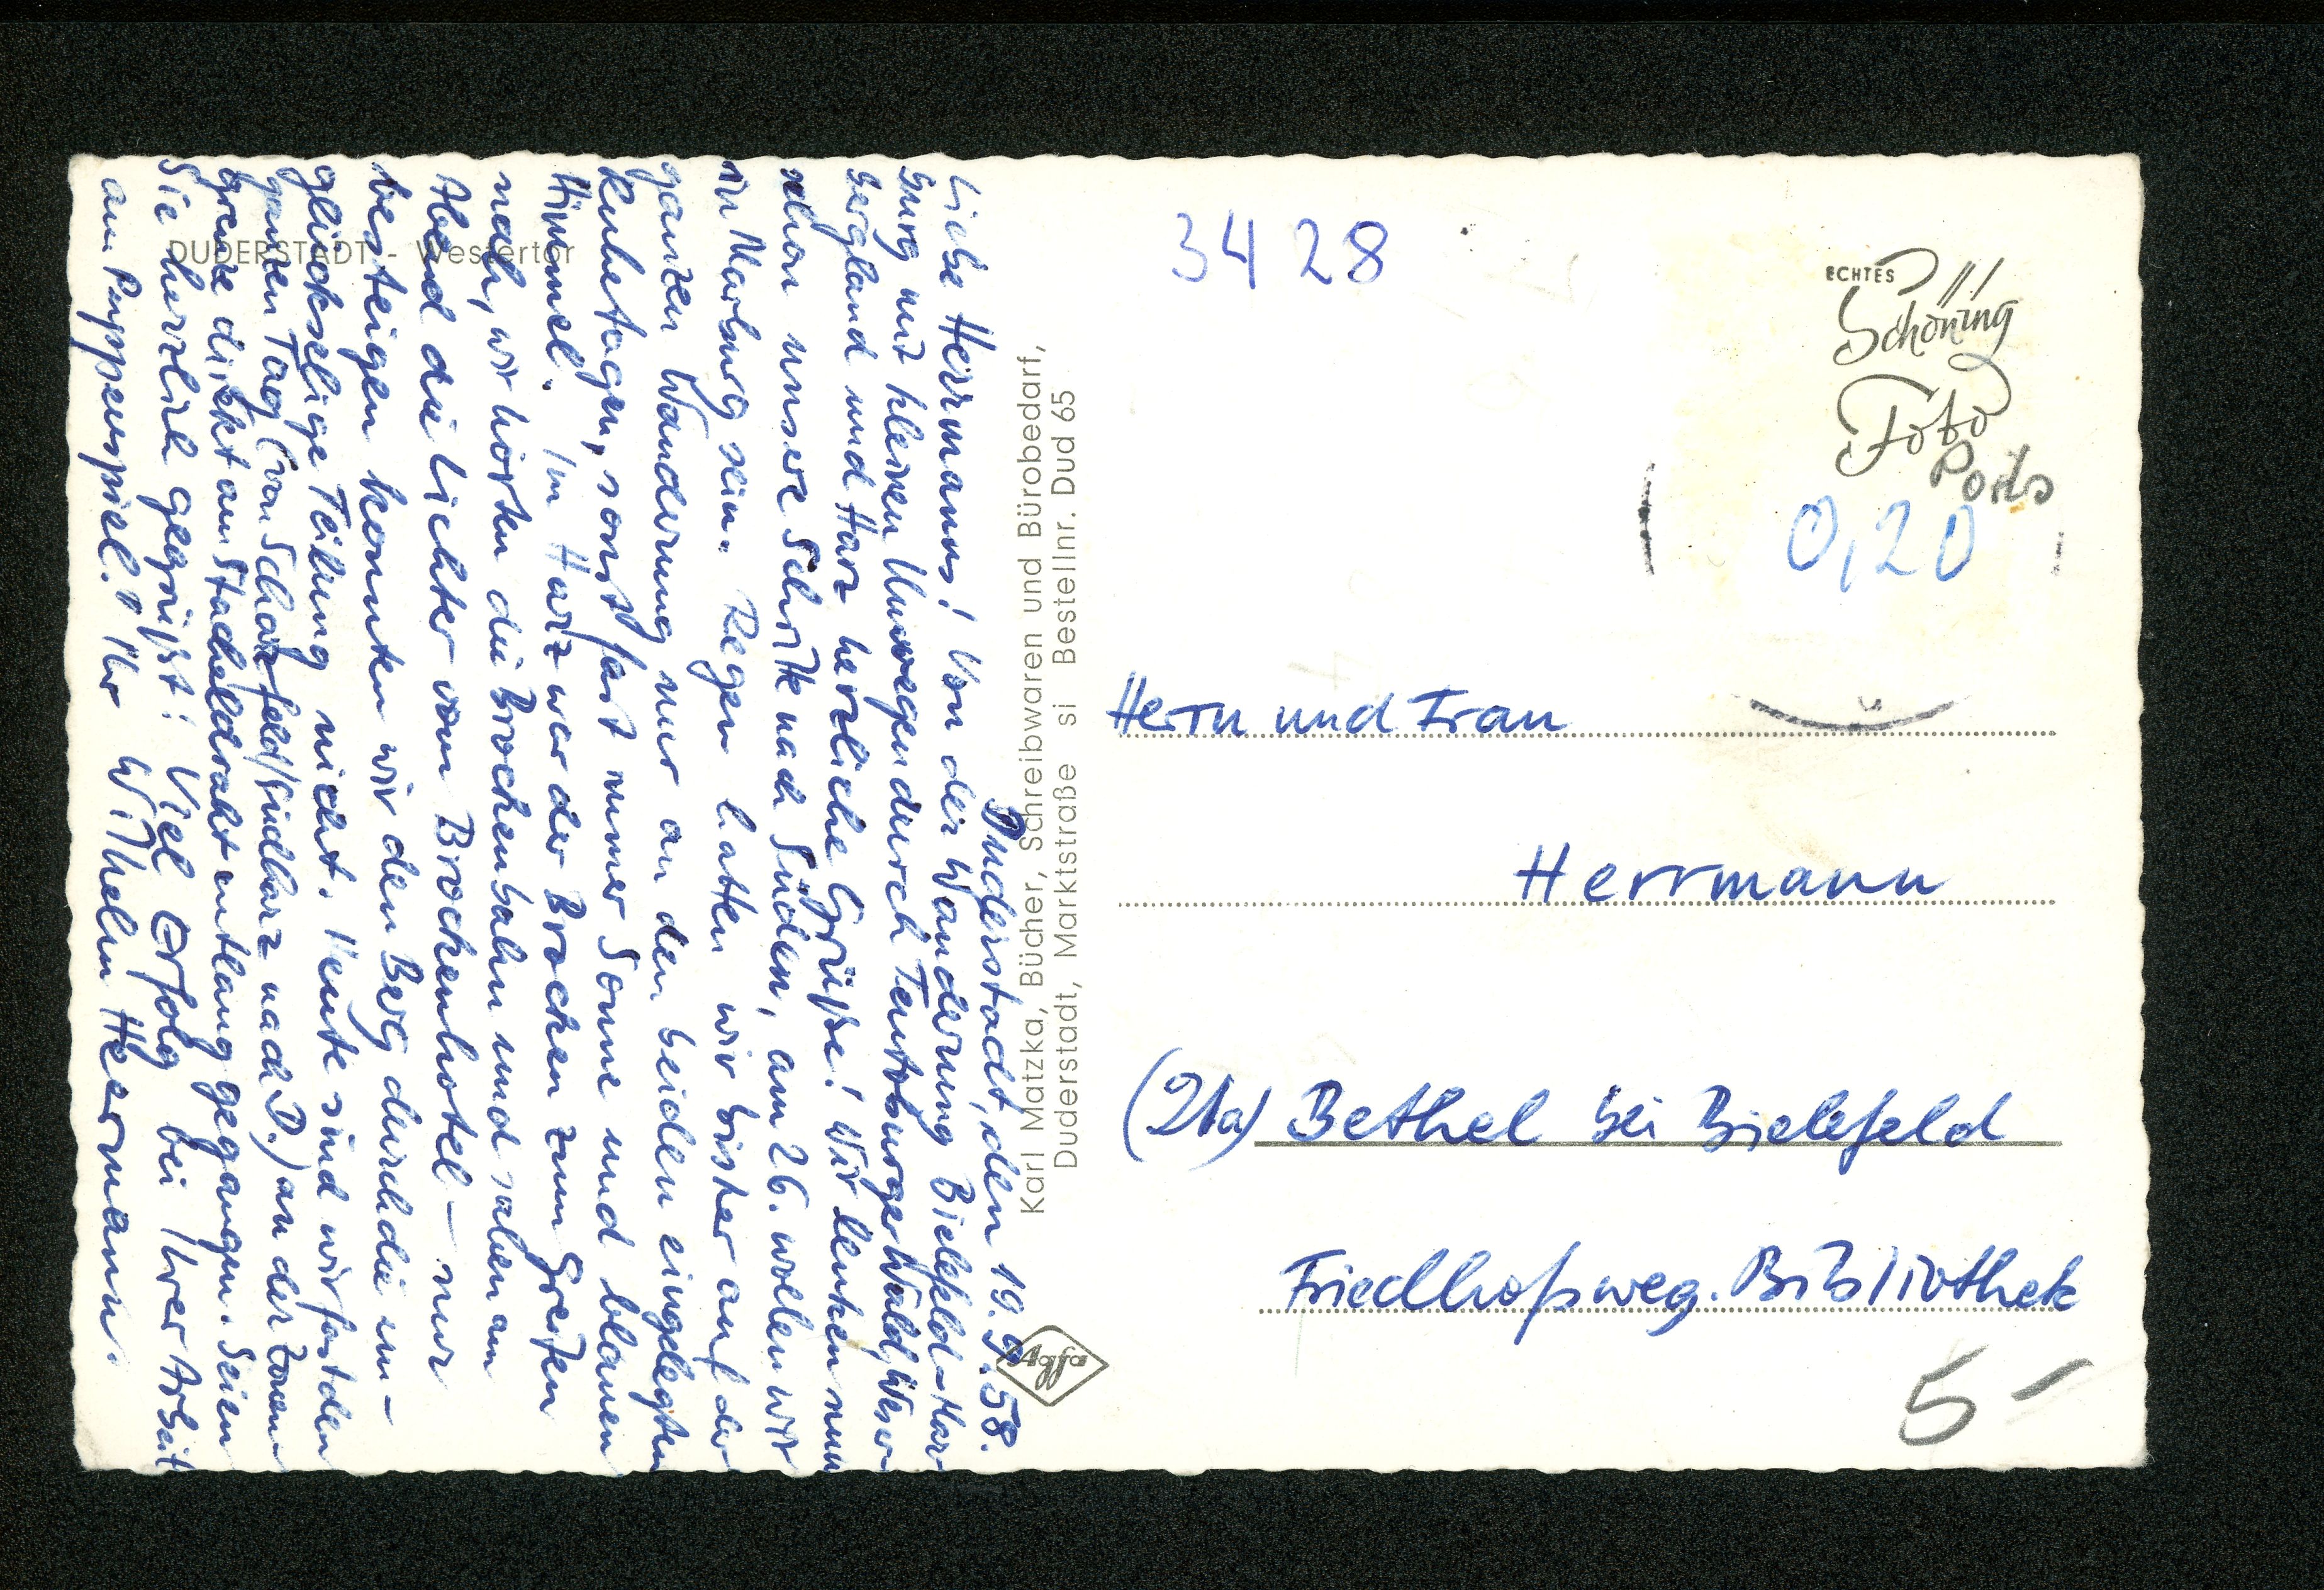 DUDERSTADT - Westertor
Duderstadt, den 19.9.58.
Liebe Herrmanns! Von der Wanderung Bielefeld-Mar-
burg mit kleinen Umwegen durch Teutoburger Wald, Weser-
bergland und Harz herzliche Grüße! Wir lenken nun
schon unsere Schritte nach Süden, am 26. wollen wir
in Marburg sein. Regen hatten wir bisher auf der
ganzen Wanderung nur an den beiden eingelegten
Ruhetagen, sonst fast immer Sonne und blauen
Himmel. Im Harz war der Brocken zum Greifen
nah, wir hörten die Brockenbahn und sahen am
Abend die Lichter vom Brockenhotel – nur
besteigen konnten wir den Berg durch die un-
glückselige Teilung nicht. Heute sind wir fast den
ganzen Tag (von Scharzfeld/Südharz nach D.) an der Zonen-
grenze direkt am Stacheldraht entlang gegangen. Seien
Sie herzlich gegrüßt! Viel Erfolg bei Ihrer Arbeit
am Puppenspiel! Ihr Wilhelm Heermann.
Karl Matzka, Bücher, Schreibwaren und Bürobedarf,
Duderstadt, Marktstraße si Bestellnr. Dud 65
Agfa
3428
ECHTES
Schöning
Foto
Porto
0,20
Herrn und Frau
Herrmann
(21a) Bethel bei Bielefeld
Friedhofsweg. Bibliothek
5-